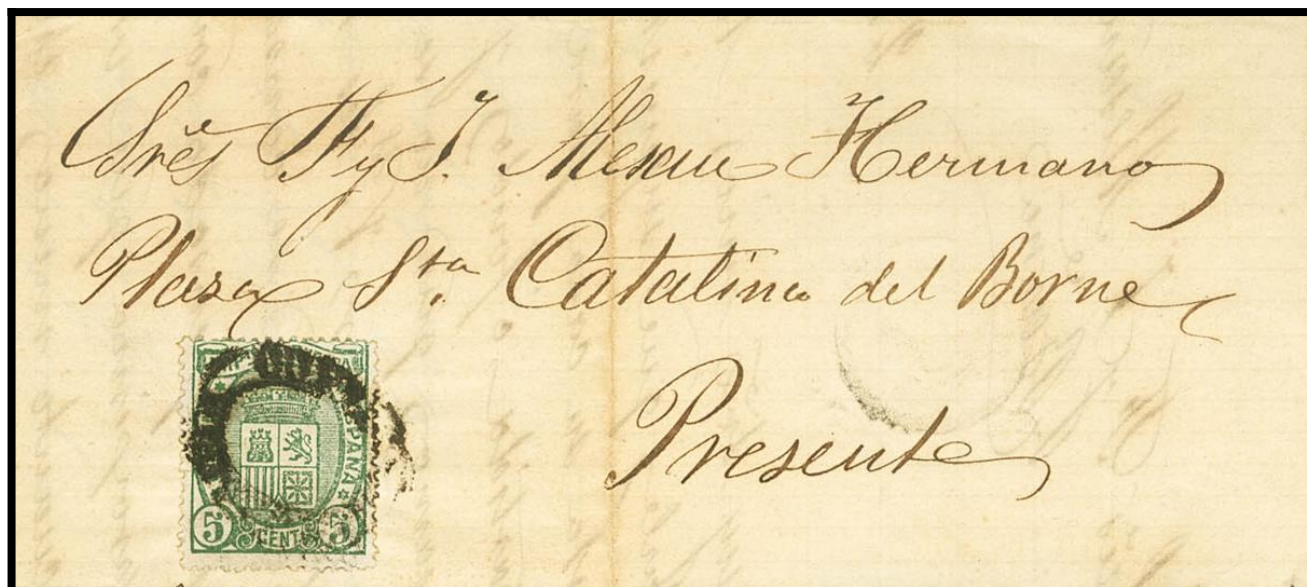 Sres F y J. Alexan Hermano
Plaza Sta. Catalina del Borne
Presente
ESPAÑA
5 CENT 5